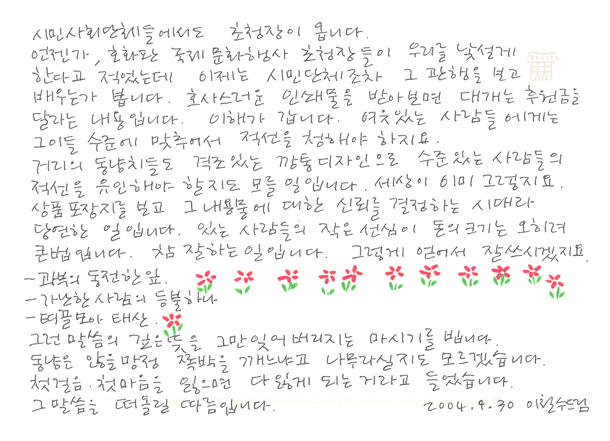 시민사회단체들에서도 초청장이 옵니다.
언젠가, 호화로운 국제문화행사 초청장들이 우리를 낯설게
한다고 적었는데 이제는 시민단체조차 그 관행을 보고
배우는가 봅니다. 호사스러운 인쇄물을 받아보면 대개는 후원금을
달라는 내용입니다. 이해가 갑니다. 여유있는 사람들에게는
그이들 수준에 맞추어서 적선을 청해야 하지요.
거리의 동냥치들도 격조있는 깡통디자인으로 수준있는 사람들의
적선을 유인해야 할지도 모를 일입니다. 세상이 이미 그렇지요.
상품포장지를 보고 그 내용물에 대한 신뢰를 결정하는 시대라
당연한 일입니다. 있는 사람들의 작은 선심이 돈의 크기는 오히려
큰법입니다. 참 잘하는 일입니다. 그렇게 얻어서 잘쓰시겠지요.
-과부의 동전한잎.
-가난한 사람의 등불하나
-티끌모아 태산.
그런 말씀의 깊은 뜻을 그만 잊어버리지는 마시기를 빕니다.
동냥은 않을망정 쪽박을 깨느냐고 나무라실지도 모르겠습니다.
첫걸음·첫마음을 잃으면 다 잃게 되는거라고 들었습니다.
그 말씀을 떠올릴 따름입니다. 2004.9.30 이철수드림